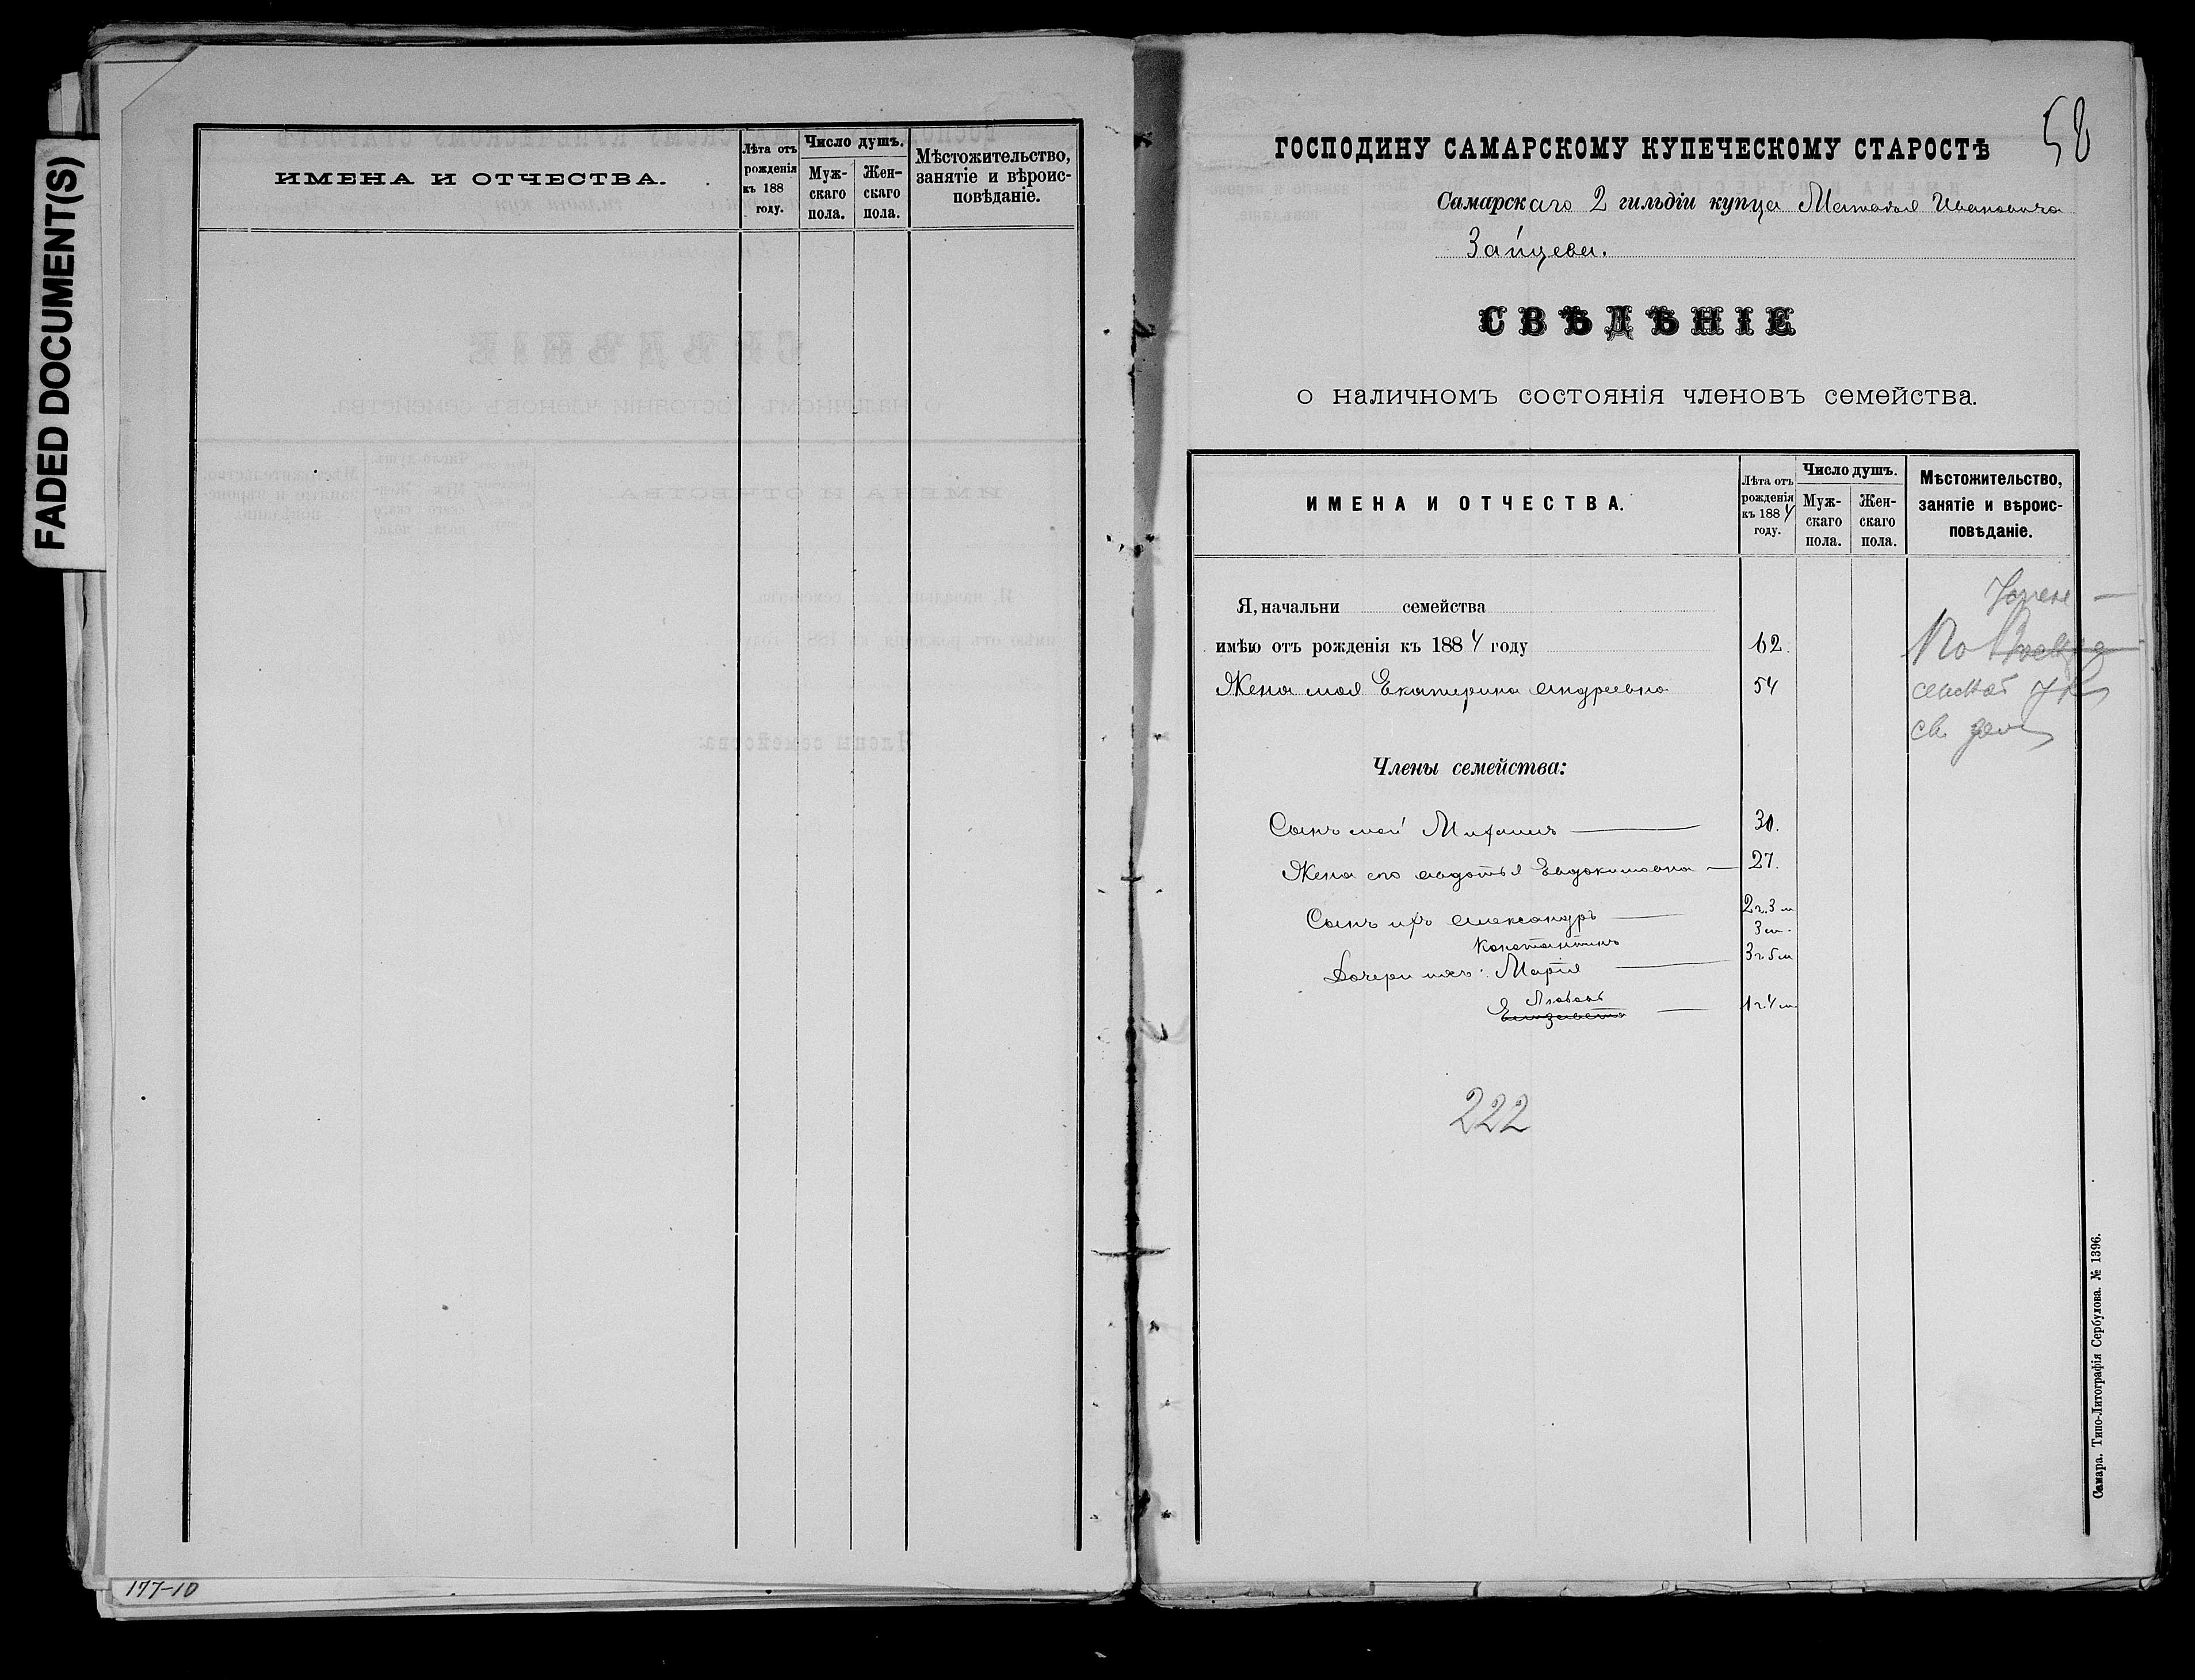 FADED DOCUMENT(S)
ИМЕНА И ОТЧЕСТВА.
Лѣта отъ
рожденія
къ 188
году.
Число душъ.
Муж-
скаго
пола.
Жен-
скаго
пола.
Мѣстожительство,
занятіе и вѣроис-
повѣданіе.
177-10
58
ГОСПОДИНУ САМАРСКОМУ КУПЕЧЕСКОМУ СТАРОСТѢ
Самарскаго 2 гильдіи купца Матвѣя Ивановича
Зайцева.
СВѢДѢНІЕ
О НАЛИЧНОМЪ СОСТОЯНІЯ ЧЛЕНОВЪ СЕМЕЙСТВА.
ИМЕНА И ОТЧЕСТВА.
Лѣта отъ
рожденія
къ 1884
году.
Число душъ.
Муж-
скаго
пола.
Жен-
скаго
пола.
Мѣстожительство,
занятіе и вѣроис-
повѣданіе.
Я, начальни семейства
имѣю отъ рожденія къ 1884 году 62.
Жена моя Екатерина Андреевна 54
По
св.
Члены семейства:
Сынъ мой Михаилъ — 30.
Жена его Авдотья Евдокимовна — 27.
Сынъ ихъ Александръ — 2 г. 3 м
Константинъ 3 м.
Дочери ихъ: Марія — 3 г. 5 м
Любовь
Елизавета — 1 г. 4 м.
222
Самара. Типо-Литографія Сербулова. № 1396.